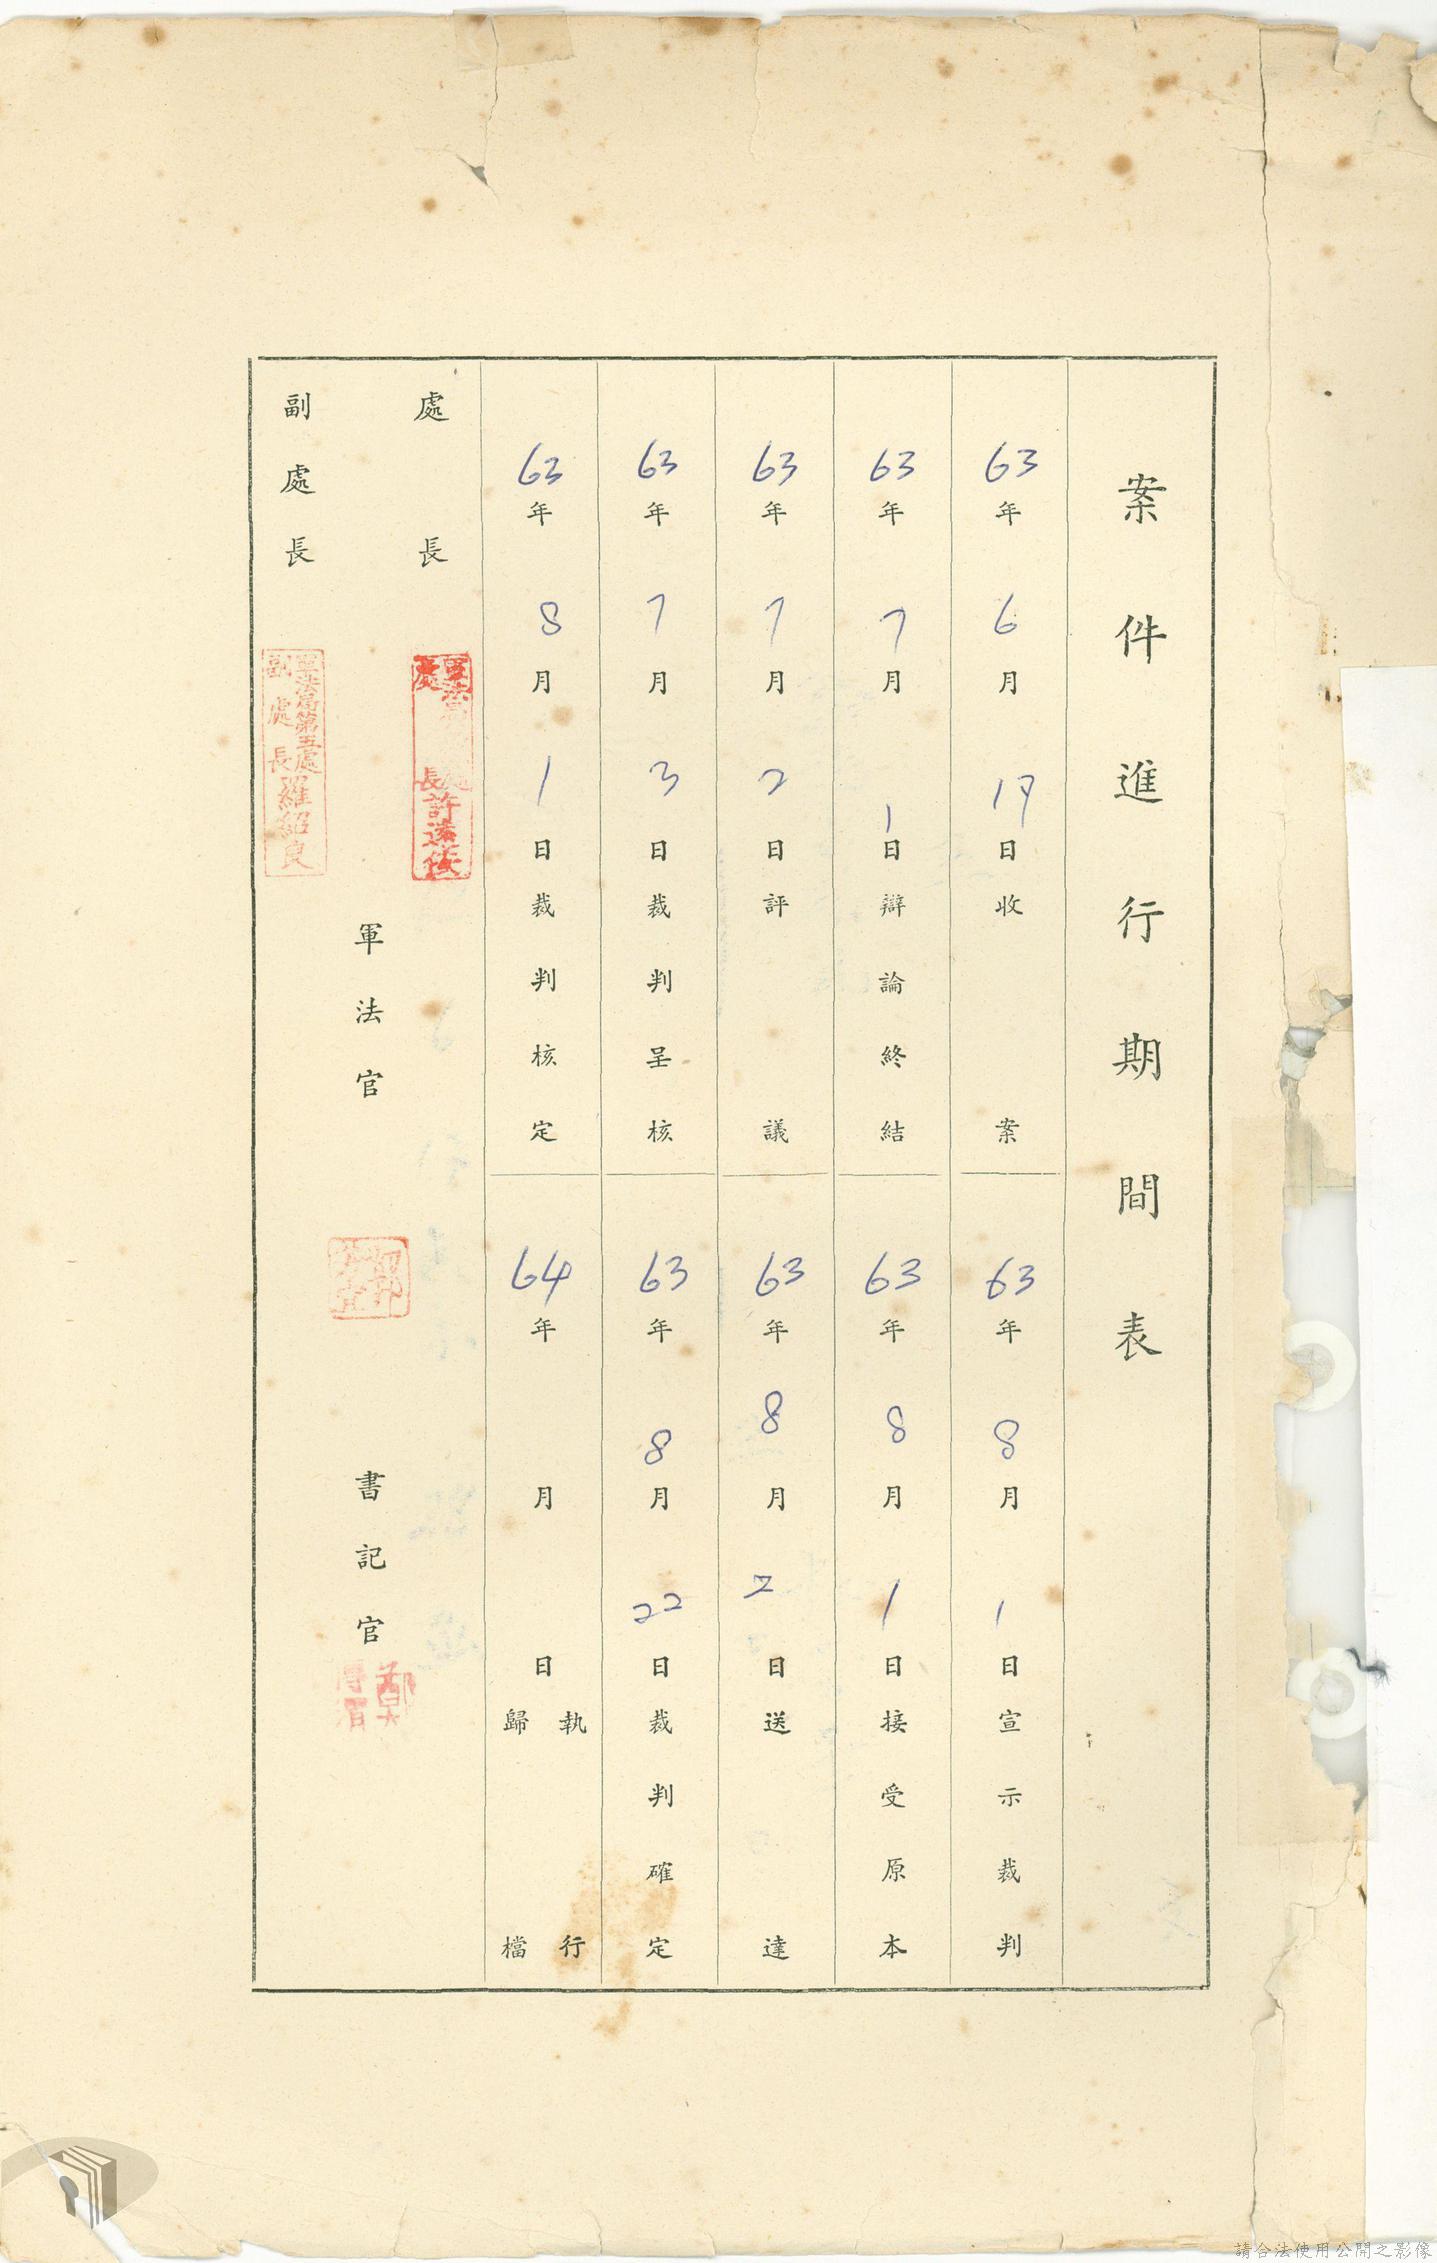 案件進行期間表
63年6月19日收案
63年8月1日宣示裁判
63年7月1日辯論終結
63年8月1日接受原本
63年7月2日評議
63年8月2日送達
63年7月3日裁判呈核
63年8月22日裁判確定
63年8月1日裁判核定
64年 月 日執行
歸檔
處長
軍法局
處長許
副處長
軍法局第五處
副處長羅紹良
軍法官
書記官
鄭
請合法使用公開之影像